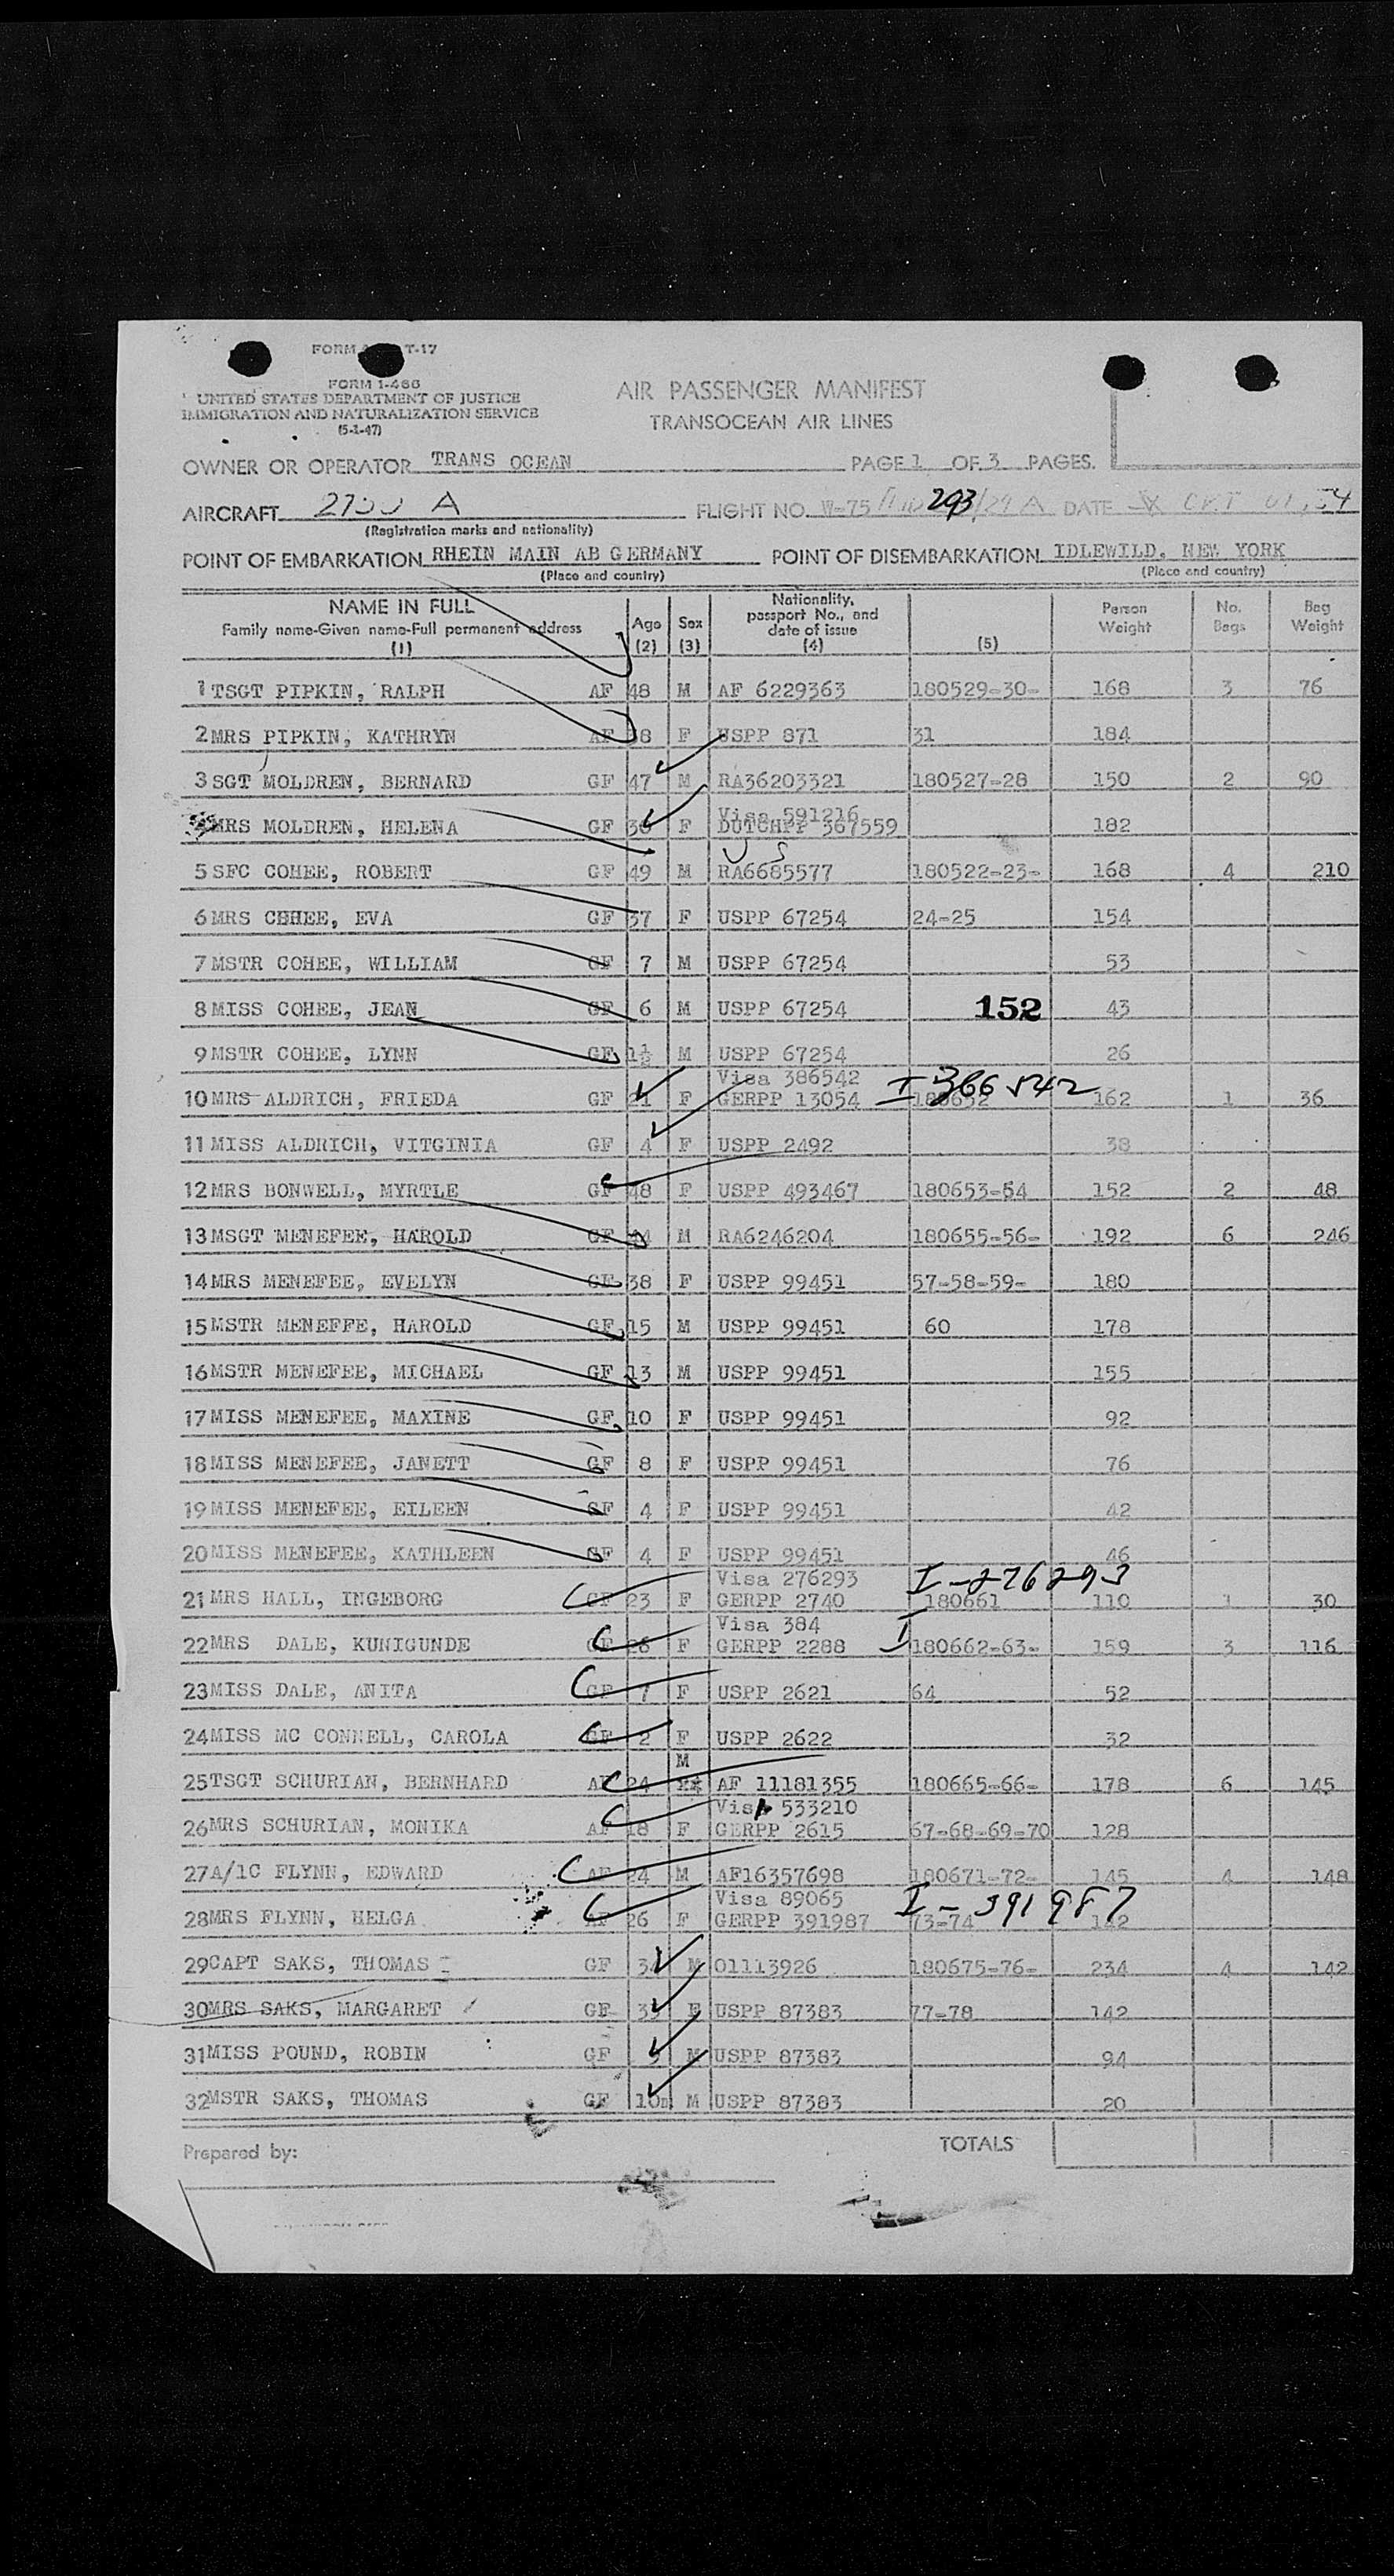 FORM T-17
FORM I-466
UNITED STATES DEPARTMENT OF JUSTICE
IMMIGRATION AND NATURALIZATION SERVICE
(5-1-47)
AIR PASSENGER MANIFEST
TRANSOCEAN AIR LINES
OWNER OR OPERATOR TRANS OCEAN PAGE 1 OF 3 PAGES.
AIRCRAFT A FLIGHT NO. W-75 293 DATE OCT 54
(Registration marks and nationality)
POINT OF EMBARKATION RHEIN MAIN AB GERMANY POINT OF DISEMBARKATION IDLEWILD, NEW YORK
(Place and country) (Place and country)
NAME IN FULL Age Sex Nationality, passport No., and date of issue Person Weight No. Bags Bag Weight
Family name-Given name-Full permanent address
(1) (2) (3) (4) (5)
1 TSGT PIPKIN, RALPH AF 48 M AF 6229363 180529-30- 168 3 76
2 MRS PIPKIN, KATHRYN AF 38 F USPP 871 31 184
3 SGT MOLDREN, BERNARD GF 47 M RA36203321 180527-28 150 2 90
Visa 591216
MRS MOLDREN, HELENA GF F DUTCHPP 367559 182
U S
5 SFC COHEE, ROBERT GF 49 M RA6685577 180522-23- 168 4 210
6 MRS CHHEE, EVA GF 37 F USPP 67254 24-25 154
7 MSTR COHEE, WILLIAM GF 7 M USPP 67254 53
8 MISS COHEE, JEAN GF 6 M USPP 67254 152 43
9 MSTR COHEE, LYNN GF 1½ M USPP 67254 26
Visa 386542 I 366542
10 MRS ALDRICH, FRIEDA GF 21 F GERPP 13054 180652 162 1 36
11 MISS ALDRICH, VITGINIA GF 4 F USPP 2492 38
12 MRS BONWELL, MYRTLE GF 48 F USPP 493467 180653-54 152 2 48
13 MSGT MENEFEE, HAROLD GF 44 M RA6246204 180655-56- 192 6 246
14 MRS MENEFEE, EVELYN GF 38 F USPP 99451 57-58-59- 180
15 MSTR MENEFFE, HAROLD GF 15 M USPP 99451 60 178
16 MSTR MENEFEE, MICHAEL GF 13 M USPP 99451 155
17 MISS MENEFEE, MAXINE GF 10 F USPP 99451 92
18 MISS MENEFEE, JANETT GF 8 F USPP 99451 76
19 MISS MENEFEE, EILEEN GF 4 F USPP 99451 42
20 MISS MENEFEE, KATHLEEN GF 4 F USPP 99451 46
Visa 276293 I-276293
21 MRS HALL, INGEBORG GF 23 F GERPP 2740 180661 110 1 30
Visa 384 I
22 MRS DALE, KUNIGUNDE GF 28 F GERPP 2288 180662-63- 159 3 116
23 MISS DALE, ANITA GF 7 F USPP 2621 64 52
24 MISS MC CONNELL, CAROLA GF 2 F USPP 2622 32
M
25 TSGT SCHURIAN, BERNHARD AF 24 AF 11181355 180665-66- 178 6 145
Visa 533210
26 MRS SCHURIAN, MONIKA AF 18 F GERPP 2615 67-68-69-70 128
27 A/1C FLYNN, EDWARD AF 24 M AF16357698 180671-72- 145 4 148
Visa 89065 I-391987
28 MRS FLYNN, HELGA AF 26 F GERPP 391987 73-74 142
29 CAPT SAKS, THOMAS GF 34 M 01113926 180675-76- 234 4 142
30 MRS SAKS, MARGARET GF 35 F USPP 87383 77-78 142
31 MISS POUND, ROBIN GF M USPP 87383 94
32 MSTR SAKS, THOMAS GF 10m M USPP 87383 20
Prepared by: TOTALS